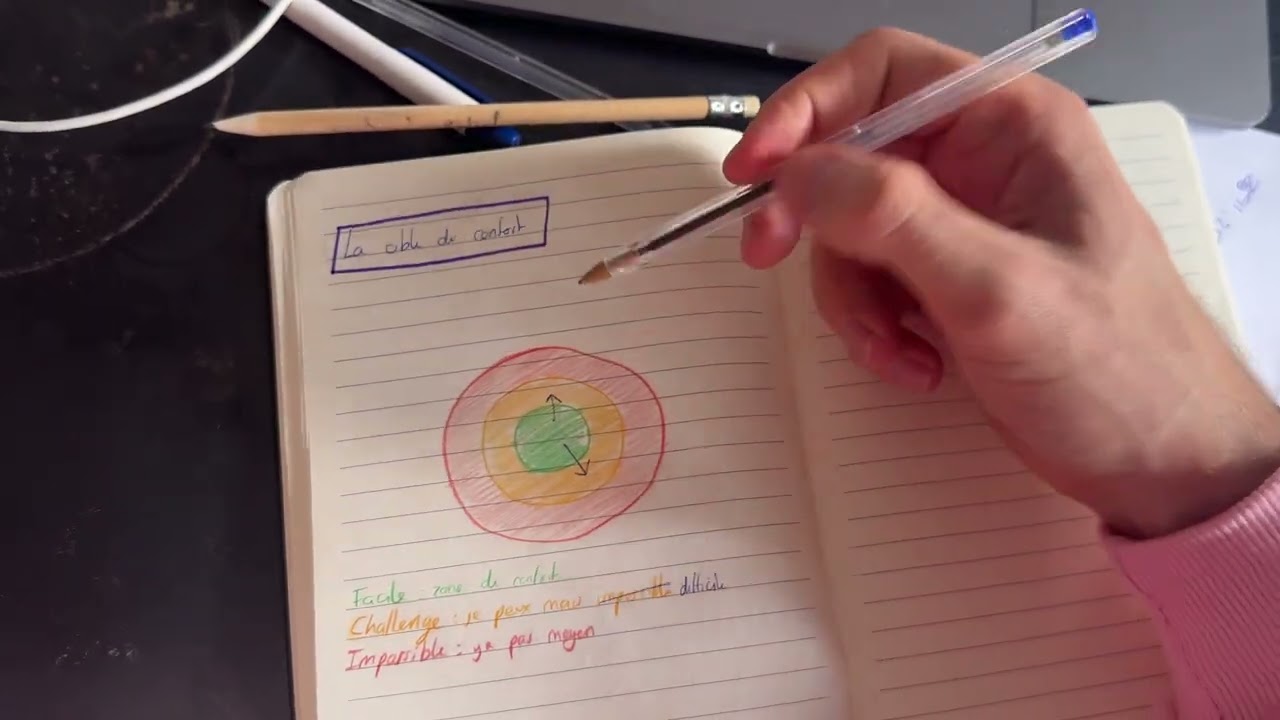 La cible du confort
Facile : zone de confort
Challenge : je peux mais impossible difficile
Impossible : ya pas moyen